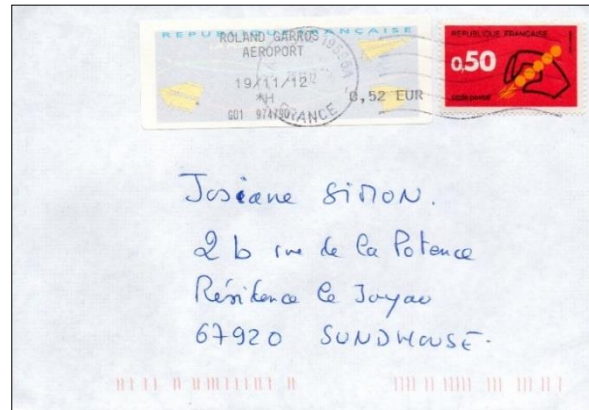 REPUBLIQUE FRANÇAISE
ROLAND GARROS
AEROPORT
19/11/12
*H
0,52 EUR
G01
FRANCE
REPUBLIQUE FRANÇAISE
0,50
code postal
Josiane SIMON.
2 b rue de la Potence
Résidence le Joyau
67920 SUNDHOUSE.